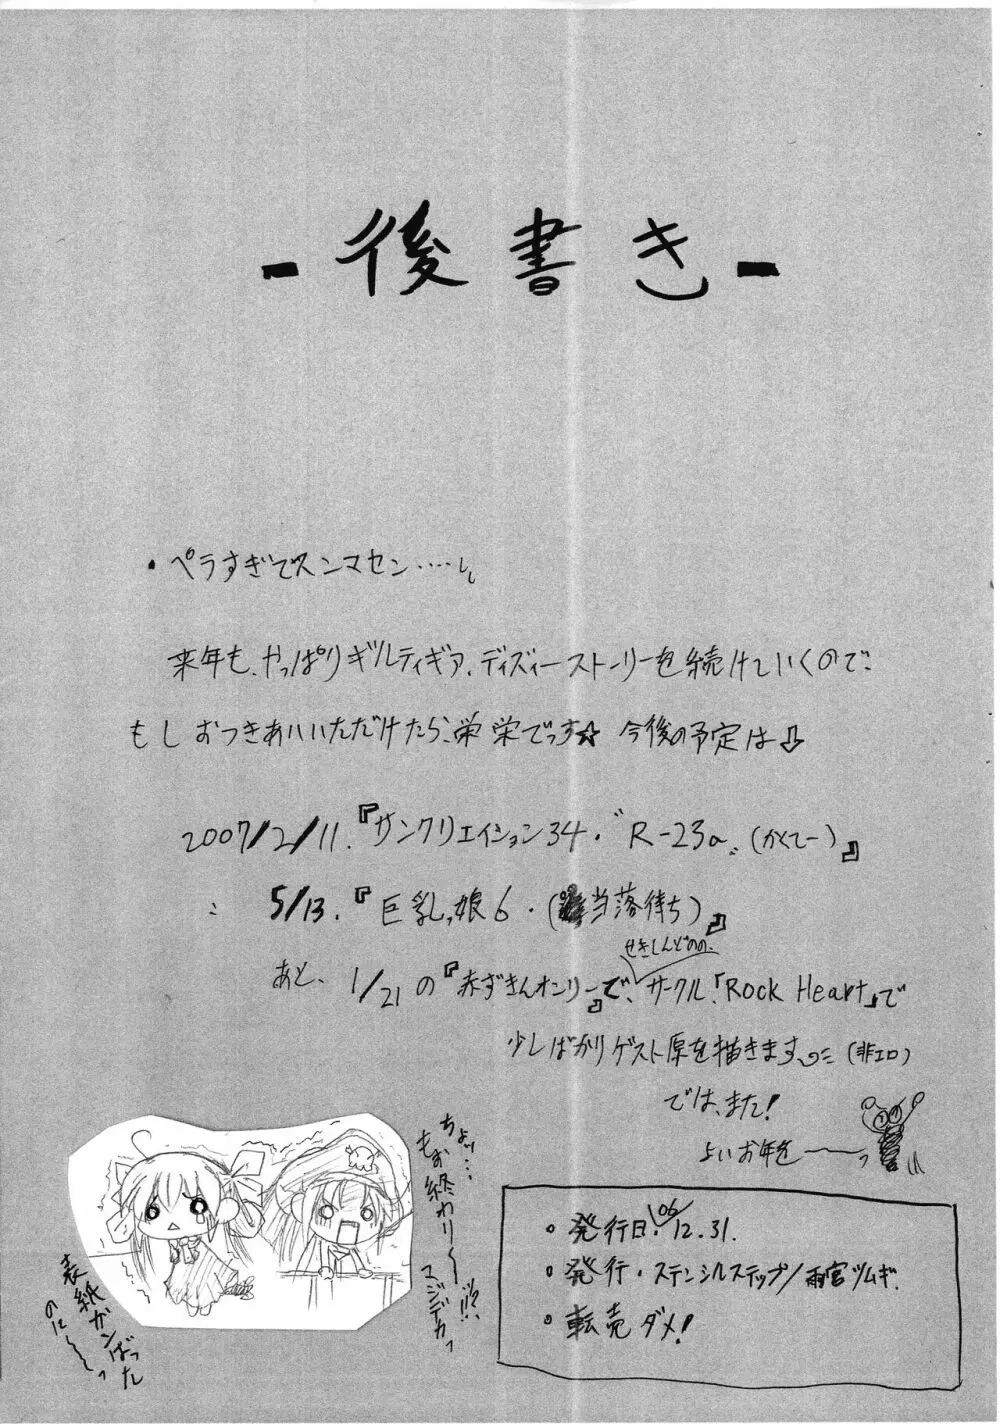 - 後書き -
・ペラすぎでスンマセン‥‥
来年も、やっぱりギルティギア、ディズィーストーリーを続けていくので、
もしおつきあいいただけたら、栄栄でっす☆ 今後の予定は⇩
2007/2/11.『サンクリエイション34・"R-23a"(かくてー)』
〃 5/13.『巨乳っ娘6・(当落待ち)』
せきしんどのの、
あと、1/21の『赤ずきんオンリー』で、サークル「Rock Heart」で
少しばかりゲスト原を描きます (非エロ)
では、また!
よいお年を〜っ
ちょッ…
もお終わり〜ッ!?!!
マジデカっ
表紙がんばった
のに〜〜っ
。発行日・'06 12.31.
。発行・ステンシルステップ/雨宮ツムギ
。転売ダメ!